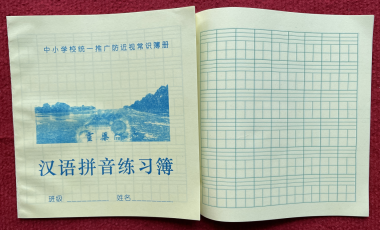 中小学校统一推广防近视常识簿册
灵渠
汉语拼音练习簿
班级 姓名